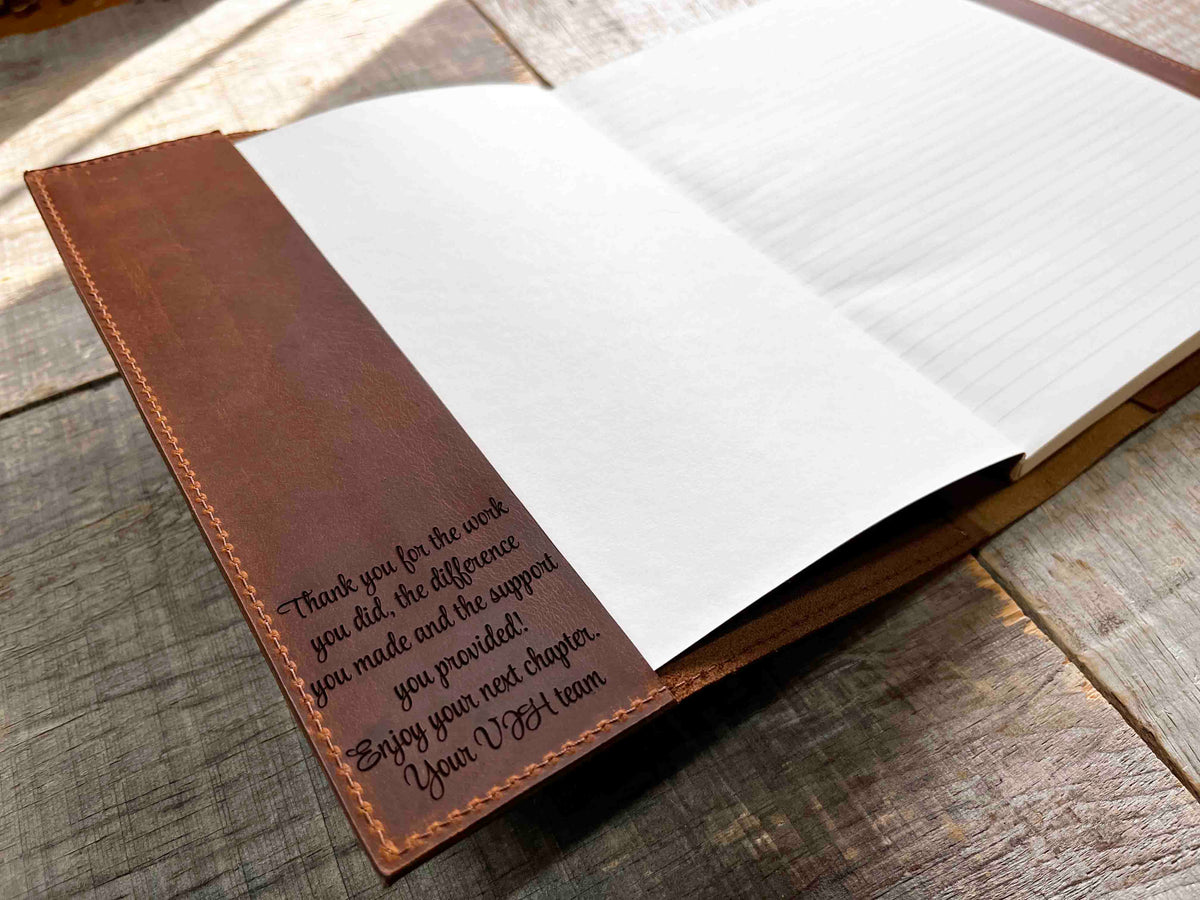 Thank you for the work
you did, the difference
you made and the support
you provided!
Enjoy your next chapter.
Your VJH team